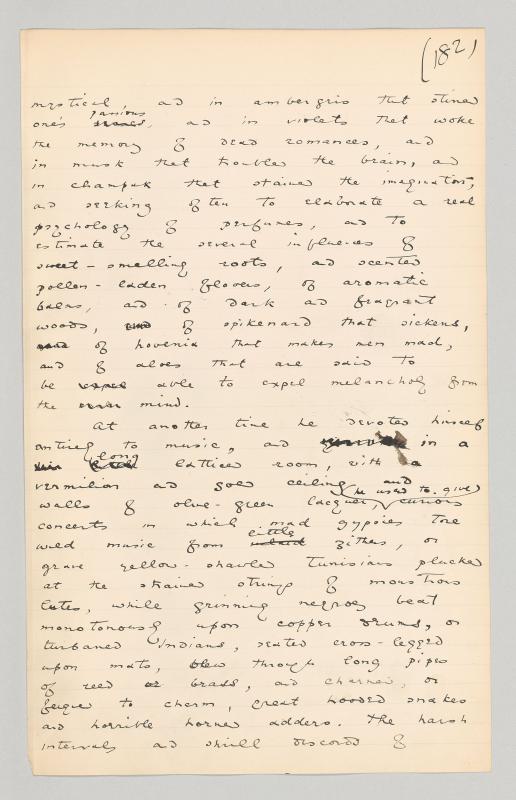 (182)
mystical, and in ambergris that stirred
one's passions, and in violets that woke
the memory of dead romances, and
in musk that troubled the brain, and
in champak that stained the imagination,
and seeking often to elaborate a real
psychology of perfumes, and to
estimate the several influences of
sweet-smelling roots, and scented
pollen-laden flowers, of aromatic
balms, and of dark and fragrant
woods, of spikenard that sickens,
of hovenia that makes men mad,
and of aloes that are said to
be able to expel melancholy from
the mind.
At another time he devoted himself
entirely to music, and in a
long latticed room, with a
vermilion and gold ceiling and
walls of olive-green lacquer, he used to give curious
concerts in which mad gypsies tore
wild music from little zithers, or
grave yellow-shawled Tunisians plucked
at the strained strings of monstrous
lutes, while grinning negroes beat
monotonously upon copper drums, or
turbaned Indians, seated cross-legged
upon mats, blew through long pipes
of reed or brass, and charmed, or
feigned to charm, great hooded snakes
and horrible horned adders. The harsh
intervals and shrill discords of